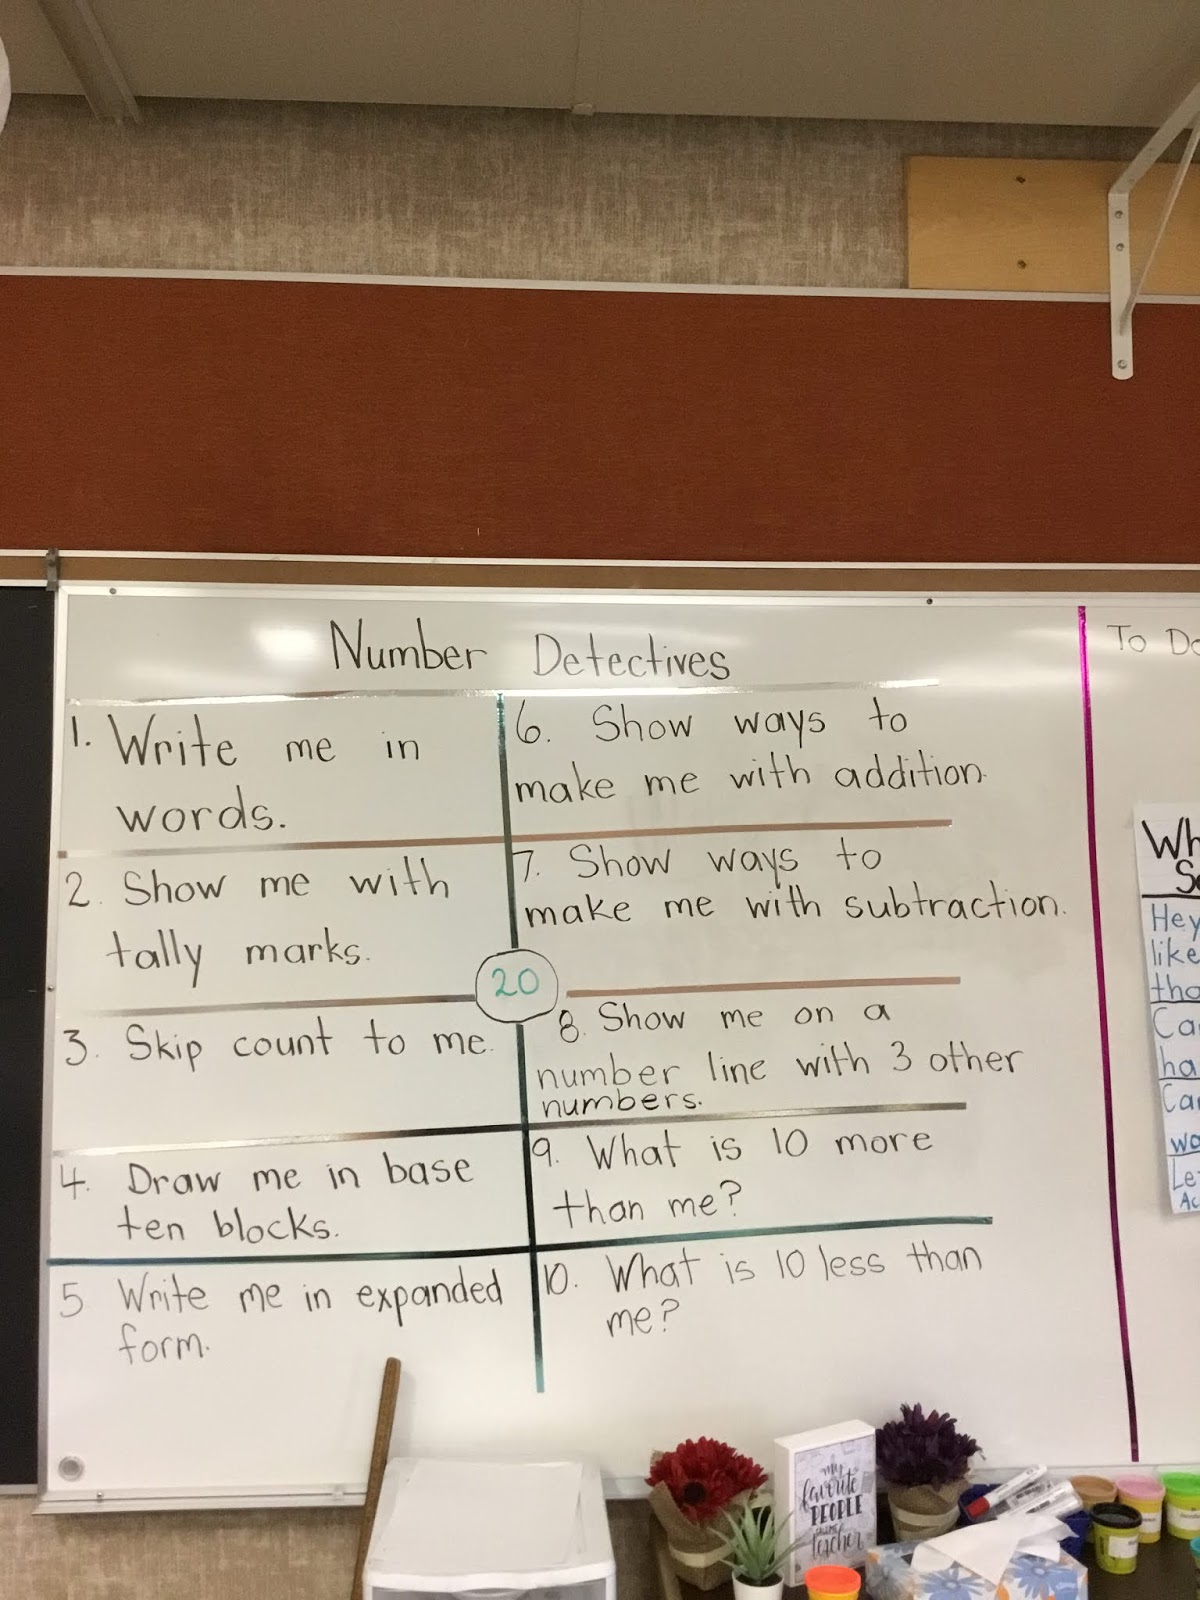 Number Detectives
1. Write me in
words.
2. Show me with
tally marks.
3. Skip count to me.
4. Draw me in base
ten blocks.
5 Write me in expanded
form.
20
6. Show ways to
make me with addition.
7. Show ways to
make me with subtraction.
8. Show me on a
number line with 3 other
numbers.
9. What is 10 more
than me?
10. What is 10 less than
me?
To Do
Hey
like
my
favorite
PEOPLE
teacher